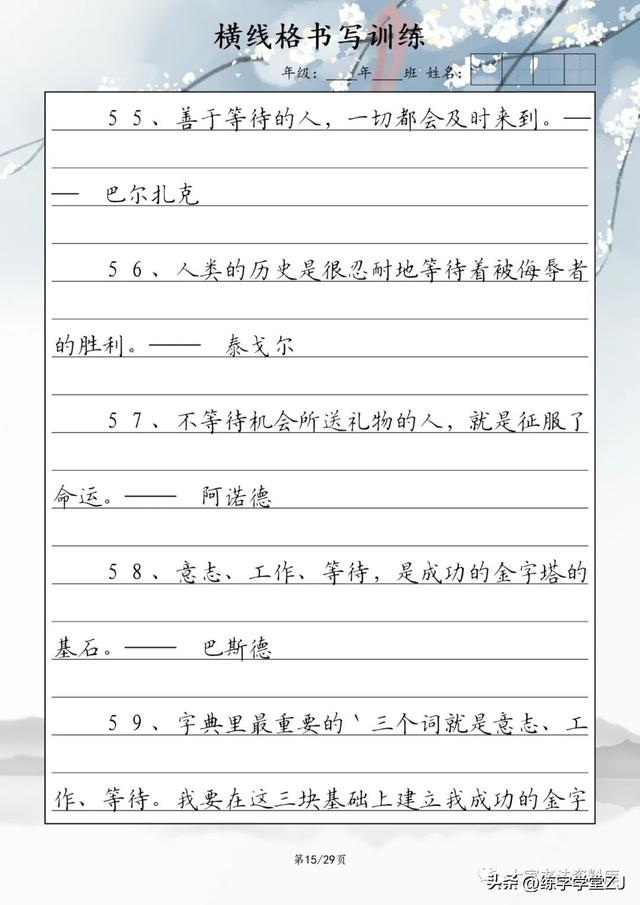 横线格书写训练
年级：____年____班 姓名：
55、善于等待的人，一切都会及时来到。—
— 巴尔扎克
56、人类的历史是很忍耐地等待着被侮辱者
的胜利。—— 泰戈尔
57、不等待机会所送礼物的人，就是征服了
命运。—— 阿诺德
58、意志、工作、等待，是成功的金字塔的
基石。—— 巴斯德
59、字典里最重要的、三个词就是意志、工
作、等待。我要在这三块基础上建立我成功的金字
第15/29页
头条@练字学堂ZJ